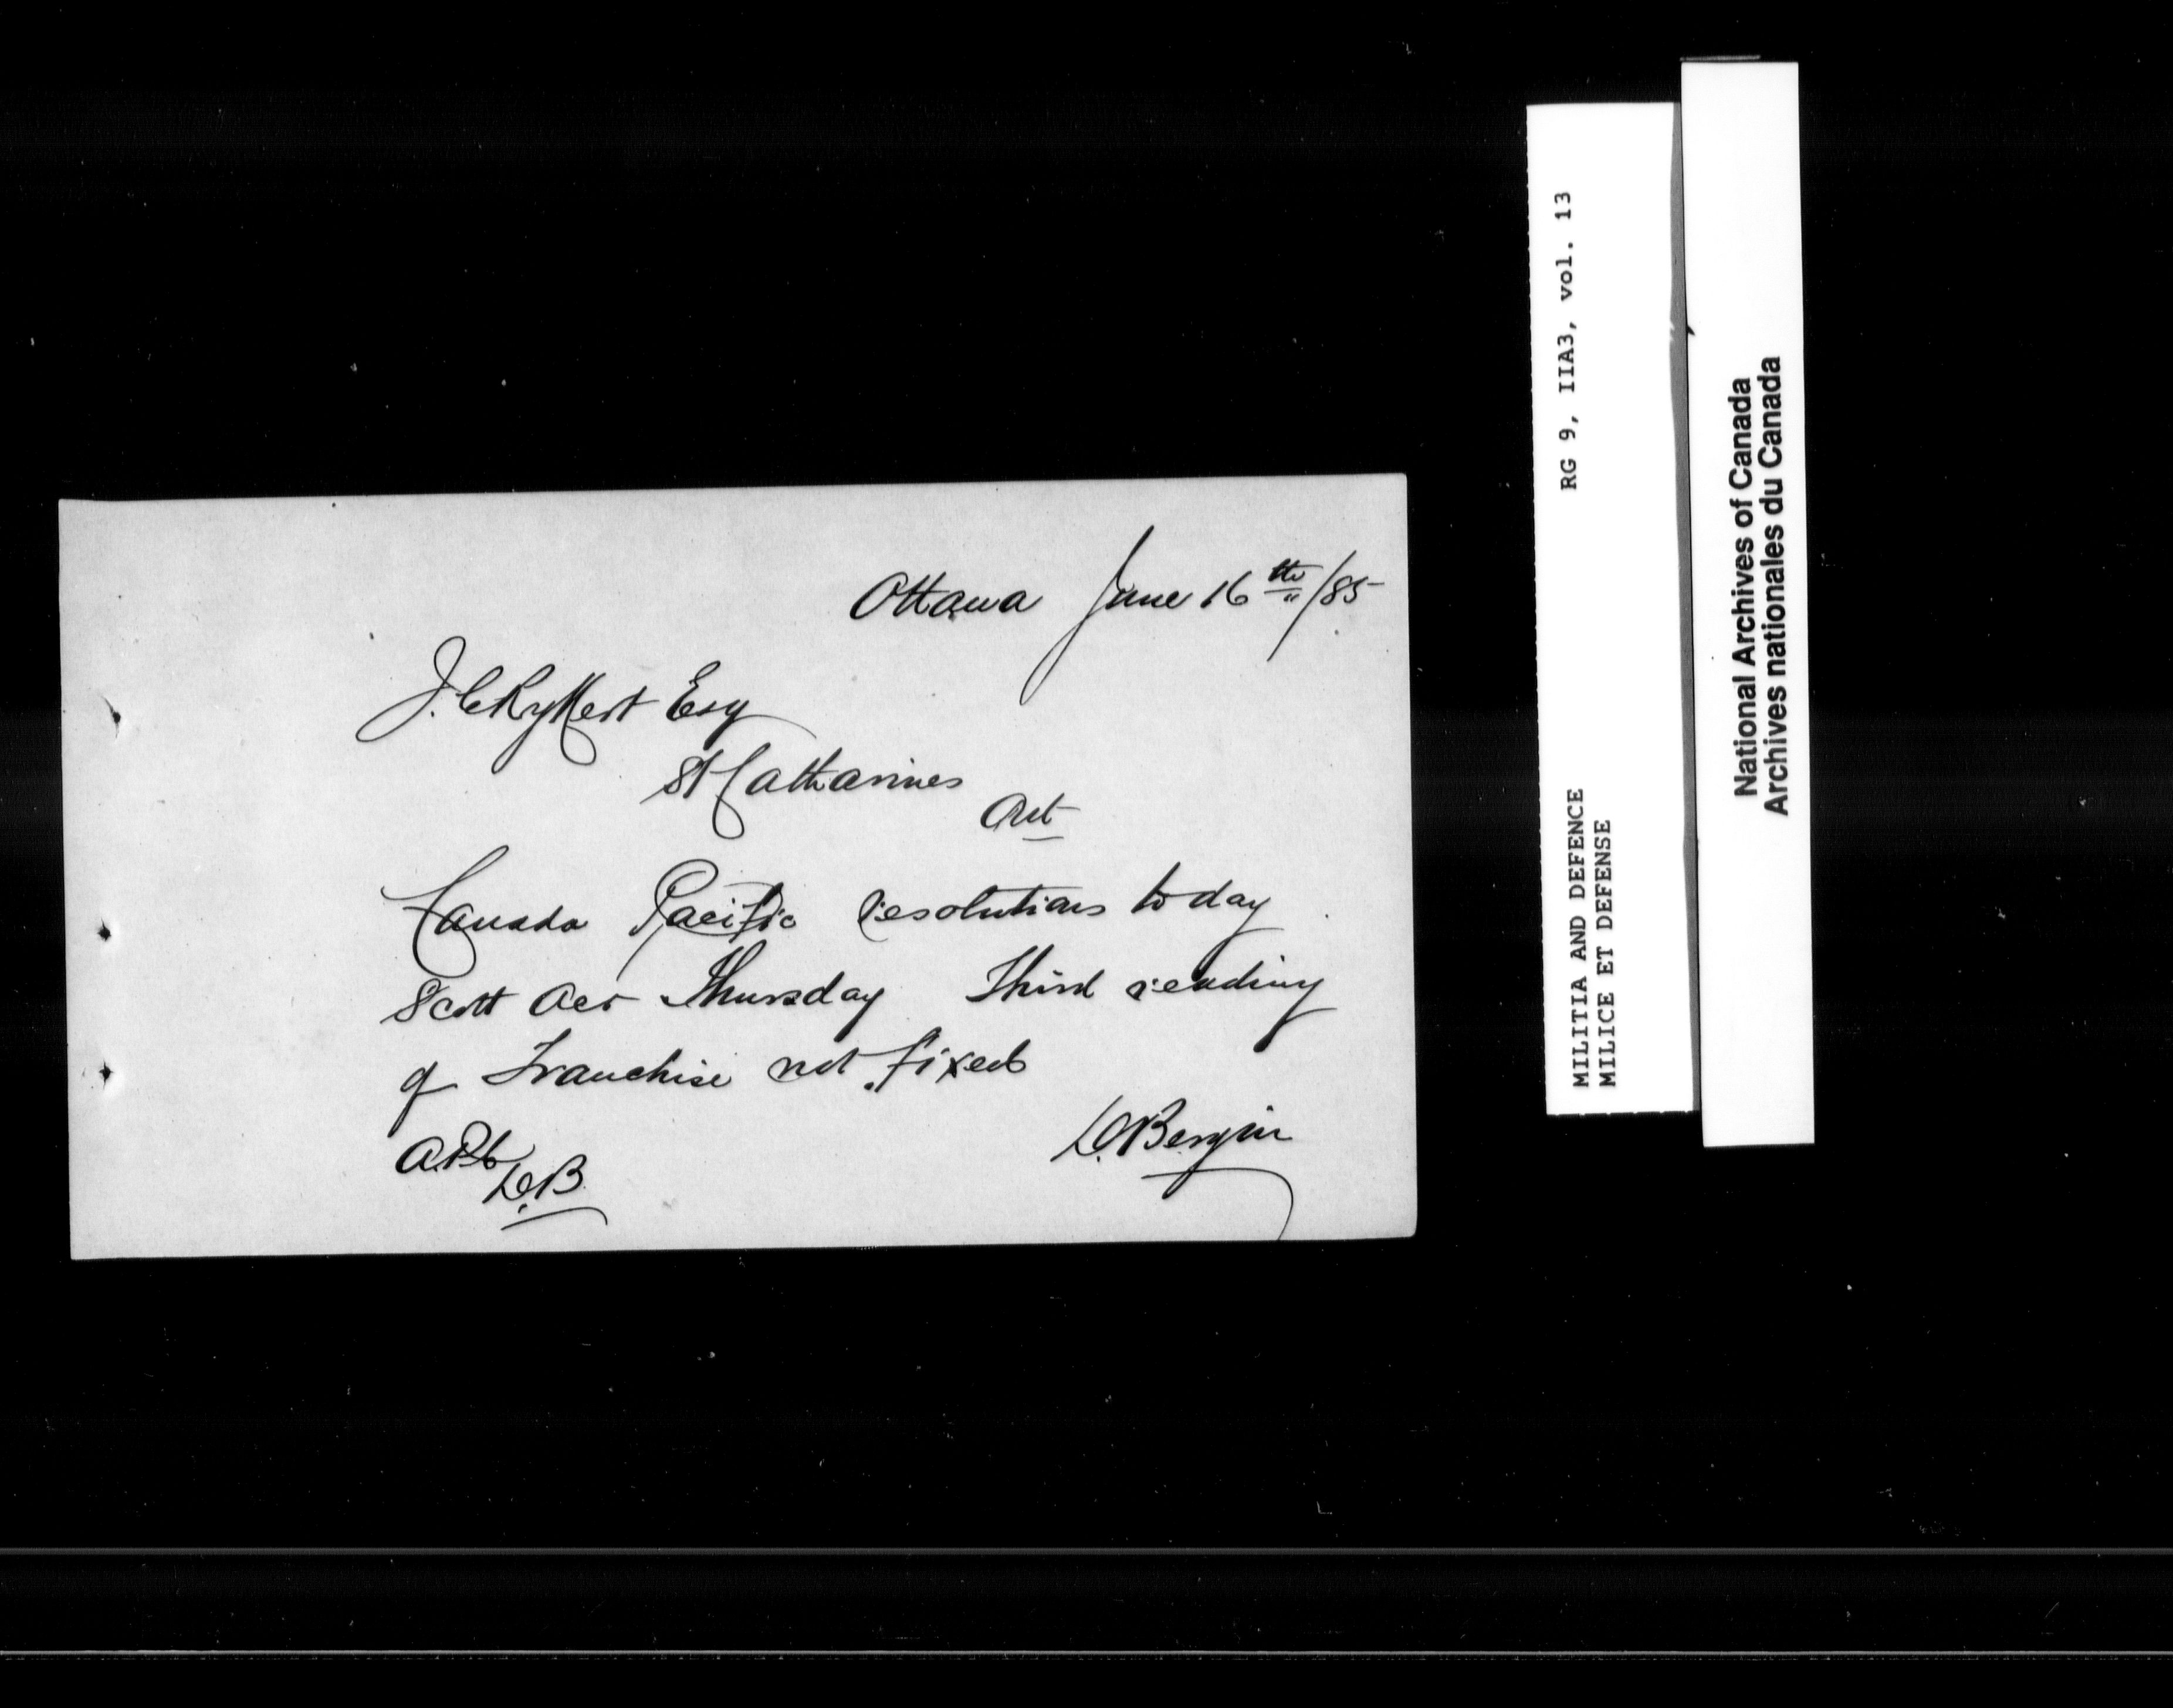 Ottawa June 16th/85
J. C Rykert Esq
St Catharines
Ont
Canada Pacific resolutions today
Scott Act Thursday Third reading
of Franchise not fixed
D. Bergin
D.B.
RG 9, IIA3, vol. 13
MILITIA AND DEFENCE
MILICE ET DEFENSE
National Archives of Canada
Archives nationales du Canada